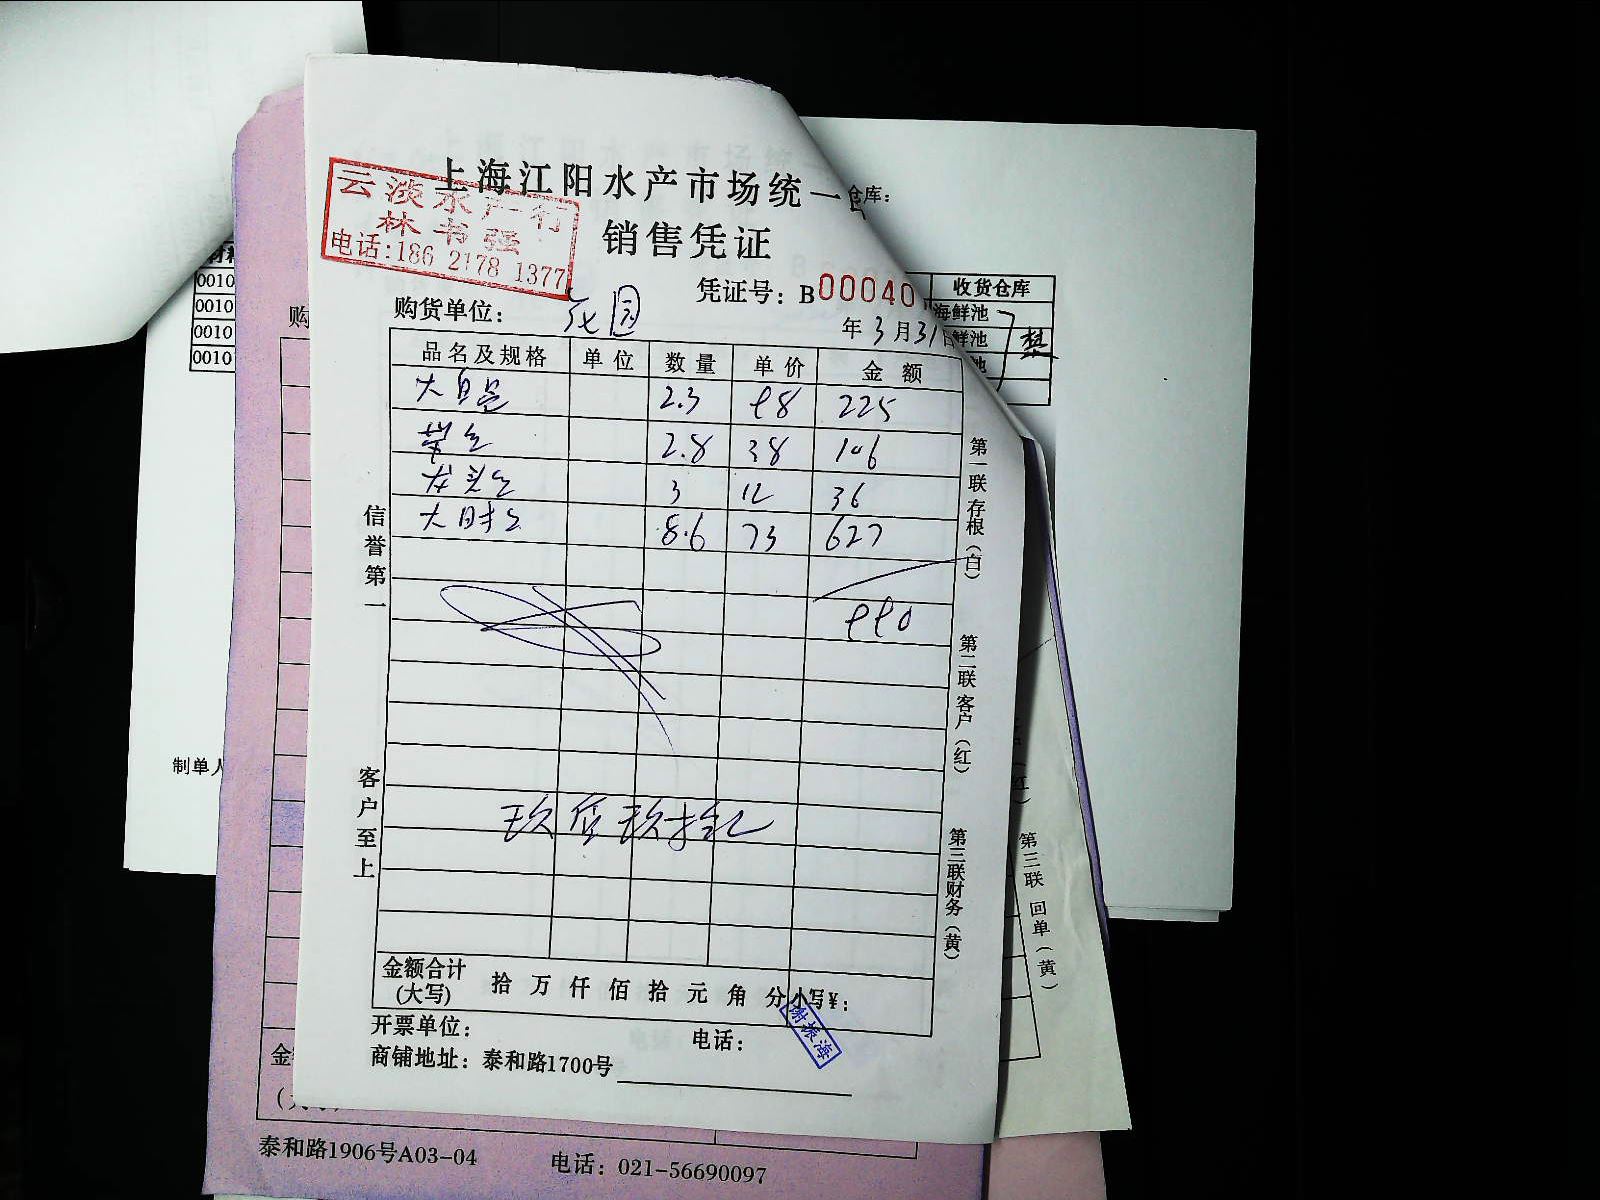 上海江阳水产市场统一
销售凭证
云淡水产行
林书强
电话:186 2178 1377
凭证号: B00040
购货单位:
年3月31
品名及规格 单位 数量 单价 金额
2.3 98 225
2.8 38 106
3 12 36
8.6 73 627
990
玖佰玖拾元
金额合计(大写) 拾 万 仟 佰 拾 元 角 分 小写¥:
开票单位: 电话:
商铺地址: 泰和路1700号
谢振海
信誉第一
客户至上
第一联存根(白)
第二联客户(红)
第三联财务(黄)
仓库:
收货仓库
海鲜池
鲜池
池
0010
0010
0010
0010
购
制单人
第三联 回单(黄)
金
泰和路1906号A03-04 电话: 021-56690097